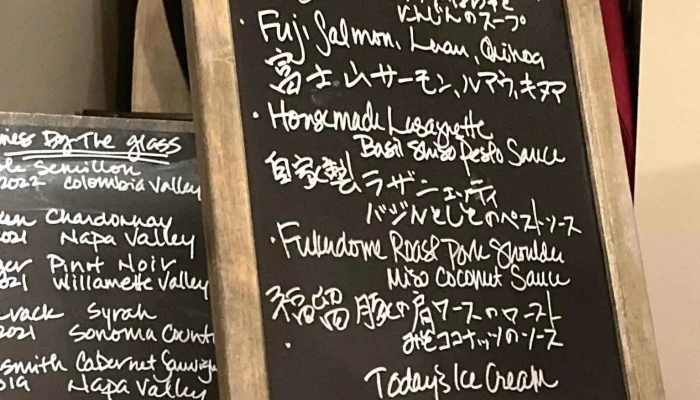 にんじんのスープ
Fuji Salmon, Luau, Quinoa
富士山サーモン、ルアウ、キヌア
Homemade Lasagnette
Basil Shiso Pesto Sauce
自家製ラザニェッティ
バジルとしそのペストソース
Fukudome Roast Pork Shoulder
Miso Coconut Sauce
福留豚の肩ロースのロースト
みそココナッツのソース
Today's Ice Cream
By The glass
Semillon
2022 Colombia Valley
Chardonnay
2021 Napa Valley
Pinot Noir
2021 Willamette Valley
Syrah
2021 Sonoma County
smith Cabernet Sauvign
2019 Napa Valley